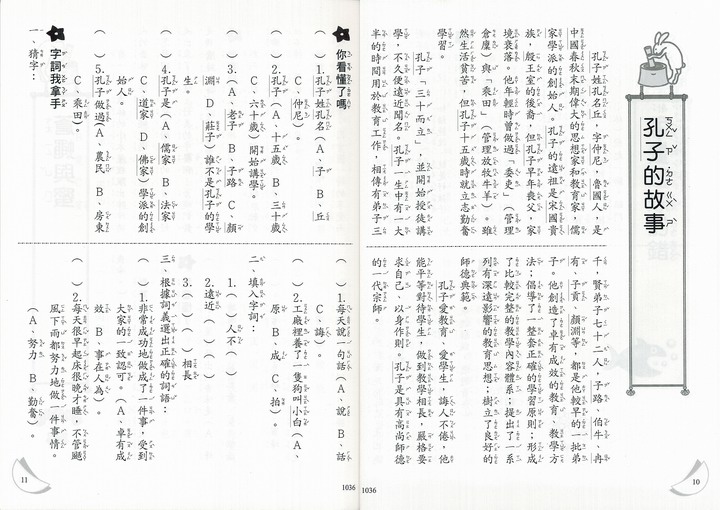 孔子的故事
孔子姓孔名丘，字仲尼，魯國人，是
中國春秋末期偉大的思想家和教育家，儒
家學派的創始人。孔子的遠祖是宋國貴
族，殷王室的後裔，但孔子早年喪父，家
境衰落。他年輕時曾做過「委吏」（管理
倉廩）與「乘田」（管理放牧牛羊）。雖
然生活貧苦，但孔子十五歲時就立志勤奮
學習。
孔子「三十而立」，並開始授徒講
學，不久便遠近聞名。孔子一生中有一大
半的時間用於教育工作，相傳有弟子三
千，賢弟子七十二人，子路、伯牛、冉
有、子貢、顏淵等，都是他較早的一批弟
子。他創造了卓有成效的教育、教學方
法；倡導了一整套正確的學習原則；形成
了比較完整的教學內容體系；提出了一系
列有深遠影響的教育思想；樹立了良好的
師德典範。
孔子愛教育，愛學生，誨人不倦，他
能平等對待學生，做到教學相長，嚴格要
求自己，以身作則。孔子是具有高尚師德
的一代宗師。
10
1036
你看懂了嗎
（ ）1.孔子姓孔名（A、子 B、丘
C、仲尼）。
（ ）2.孔子（A、十五歲 B、三十歲
C、六十歲）開始講學。
（ ）3.（A、老子 B、子路 C、顏
淵 D、莊子）誰不是孔子的學
生。
（ ）4.孔子是（A、儒家 B、法家
C、道家 D、佛家）學派的創
始人。
（ ）5.孔子做過（A、農民 B、房東
C、乘田）。
字詞我拿手
一、猜字：
（ ）1.每天說一句話（A、說 B、話
C、誨）。
（ ）2.工廠裡養了一隻狗叫小白（A、
原 B、成 C、抬）。
二、填入字詞：
1.（ ）人不（ ）
2.遠近（ ）（ ）
3.（ ）（ ）相長
三、根據詞義選出正確的詞語：
（ ）1.非常成功地做成了一件事，受到
大家的一致認可。（A、卓有成
效 B、事在人為）。
（ ）2.每天很早起床很晚才睡，不管颳
風下雨都努力地做一件事情。
（A、努力 B、勤奮）。
11
1036